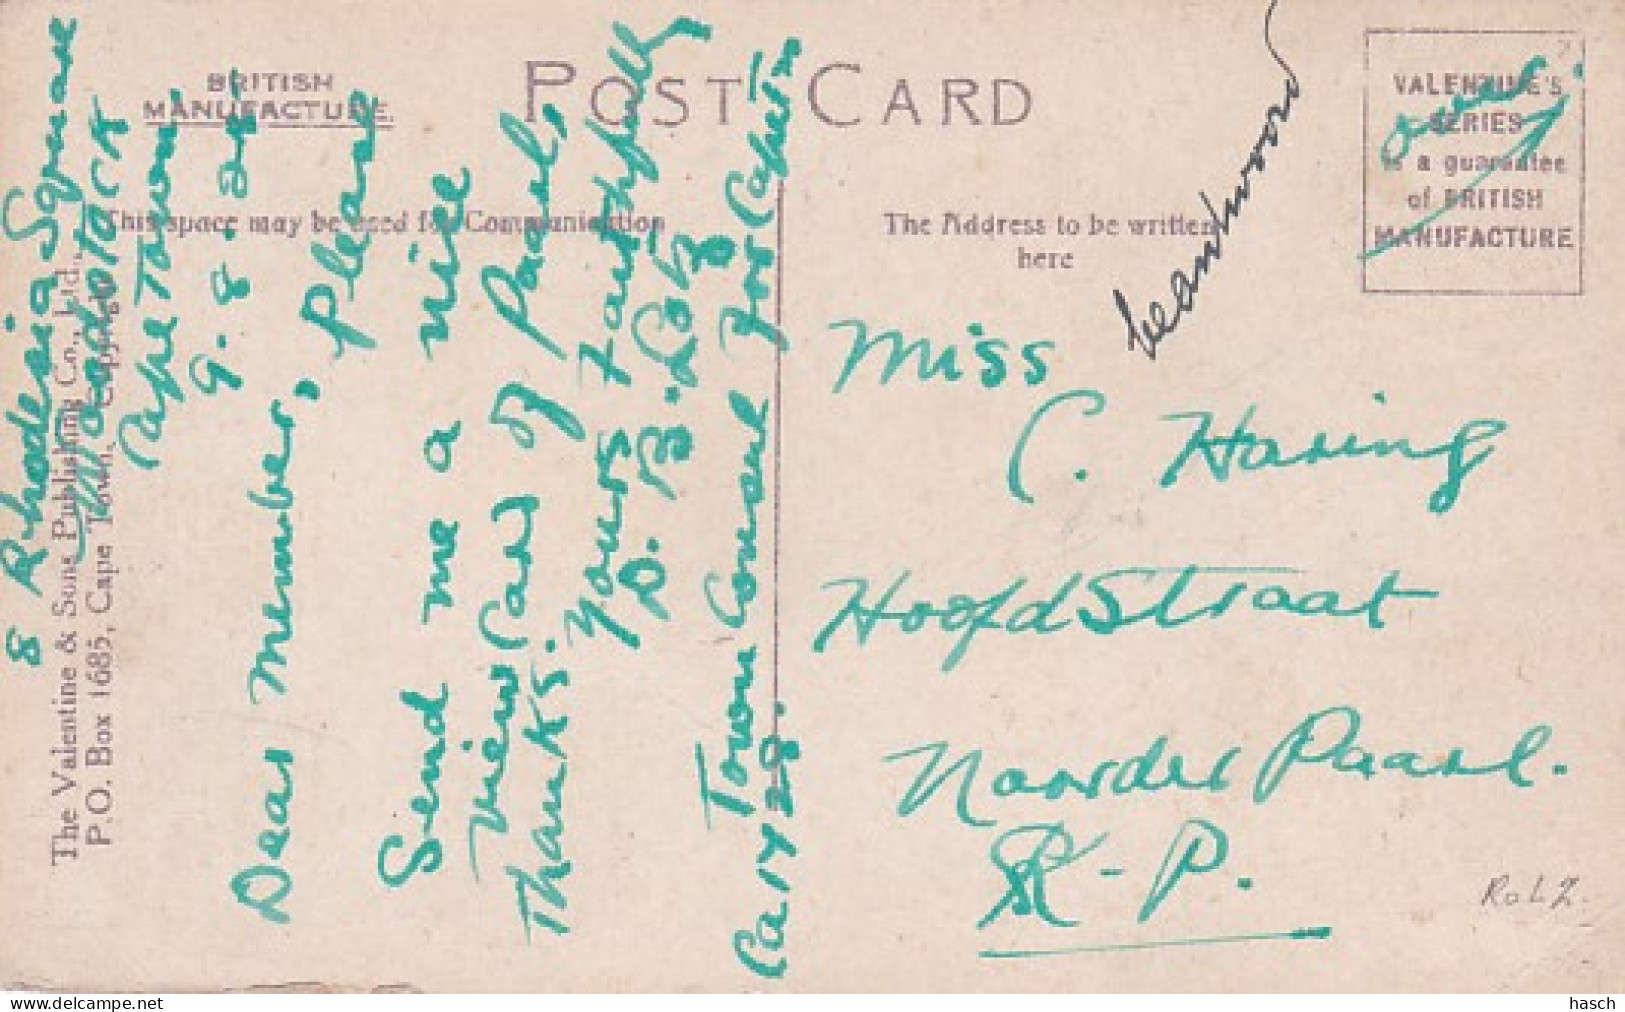 BRITISH
MANUFACTURE.
POST CARD
This space may be used for Communication
The Address to be written
here
VALENTINE'S
SERIES
is a guarantee
of BRITISH
MANUFACTURE
over.
beantwoord
The Valentine & Sons Publishing Co., Ltd.,
P.O. Box 1685, Cape Town. Copyright
8 Rhodesia Square
Woodstock
Cape Town
9.8.28
Dear member, please
Send me a nice
View Card of Paarl,
Thanks.
Yours Faithfully
D. B. Loh
Town Consul for Capetn
Ca 1428.
Miss
C. Haring
HoofdStraat
Noorder Paarl.
K-P.
RolZ.
hasch